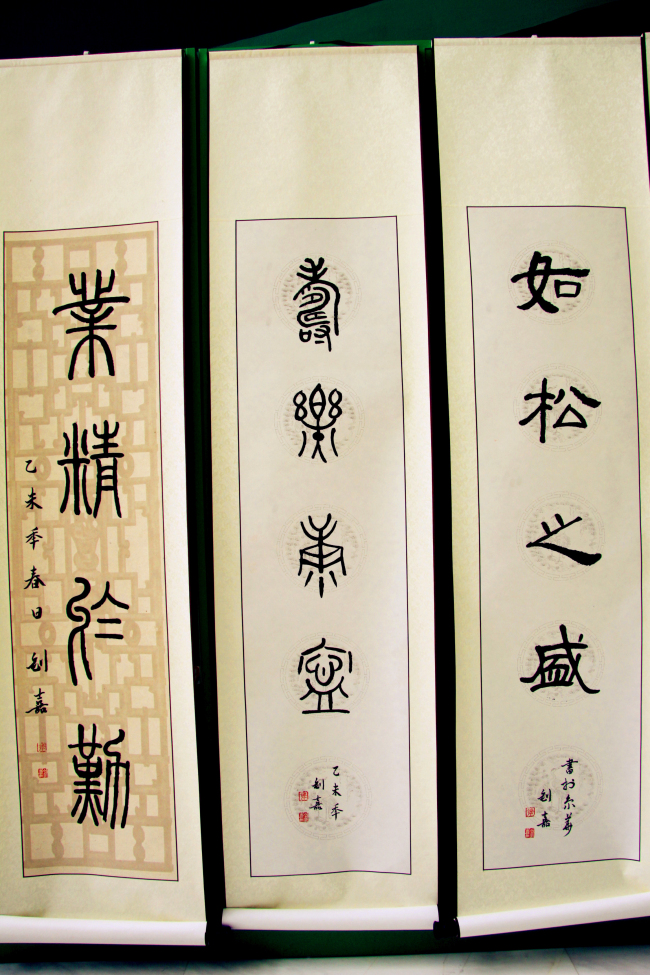 如松之盛
書於京華
嘉
壽樂康寧
乙未年
嘉
業精於勤
乙未年春日 嘉